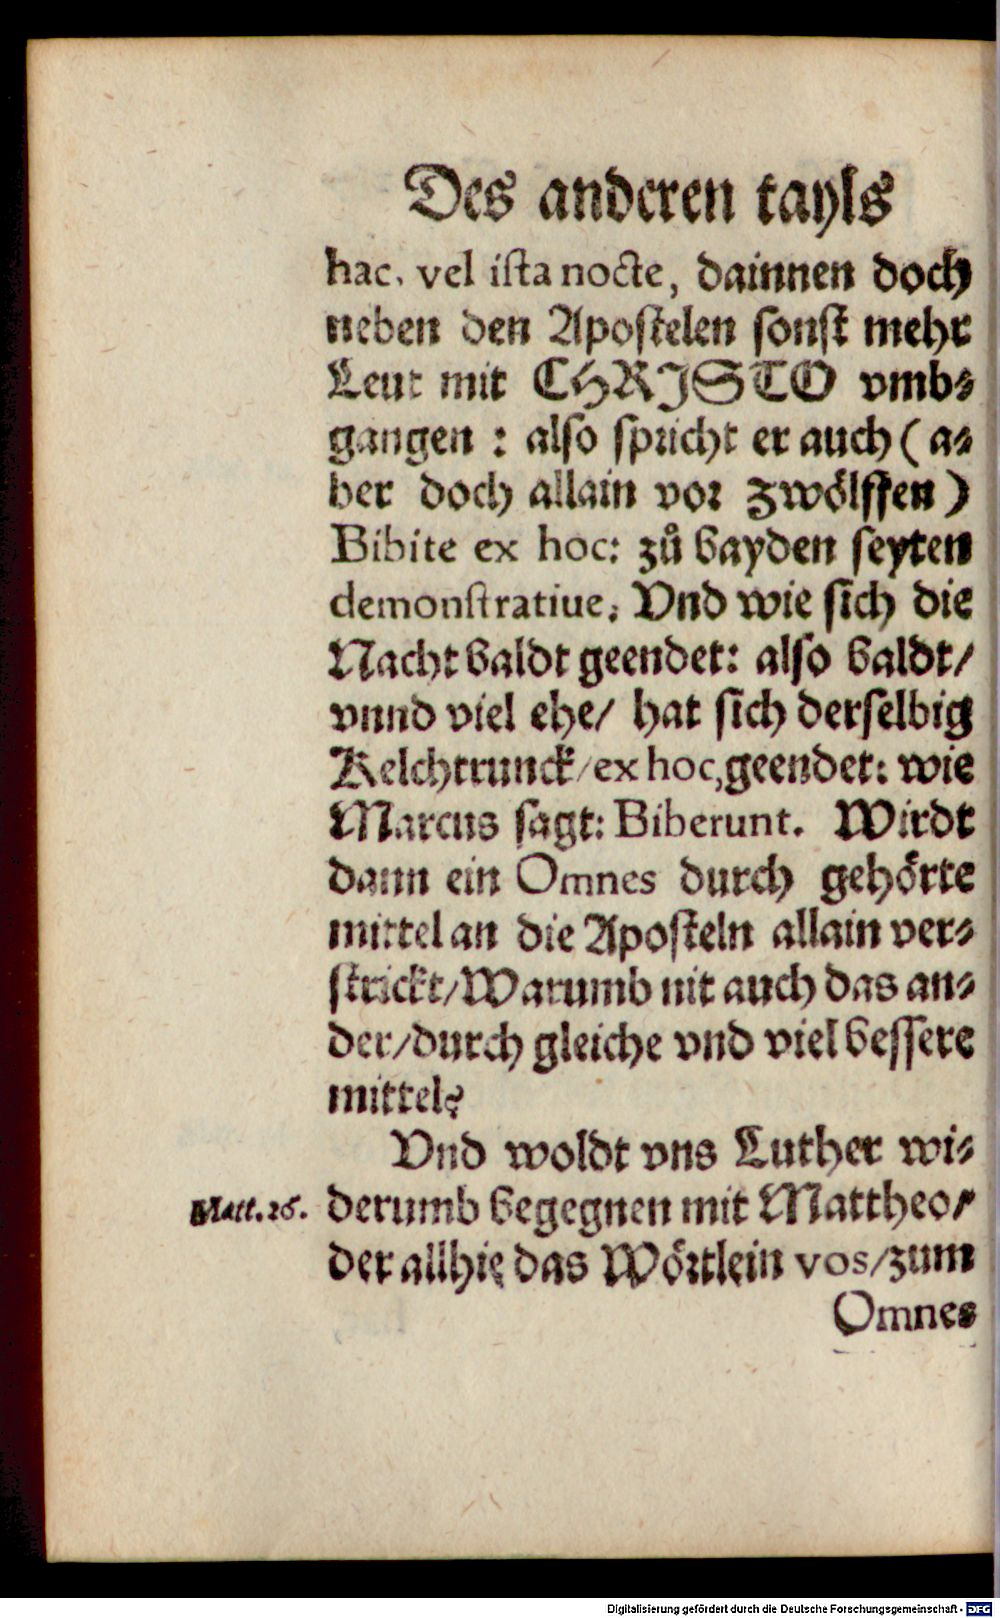 Des anderen tayls
hac, vel ista nocte, dainnen doch
neben den Apostelen sonst mehr
Leut mit CHRISTO vmb⸗
gangen : also spricht er auch ( a⸗
ber doch allain vor zwölffen )
Bibite ex hoc: zů bayden seyten
demonstratiue. Vnd wie sich die
Nacht baldt geendet: also baldt/
vnnd viel ehe/ hat sich derselbig
Kelchtrunck/ex hoc,geendet: wie
Marcus sagt: Biberunt. Wirdt
dann ein Omnes durch gehörte
mittel an die Aposteln allain ver⸗
strickt/Warumb nit auch das an⸗
der/durch gleiche vnd viel bessere
mittel?
Vnd woldt vns Luther wi⸗
Matt.26.
derumb begegnen mit Mattheo/
der allhie das Wörtlein vos/zum
Omnes
Digitalisierung gefördert durch die Deutsche Forschungsgemeinschaft - DFG